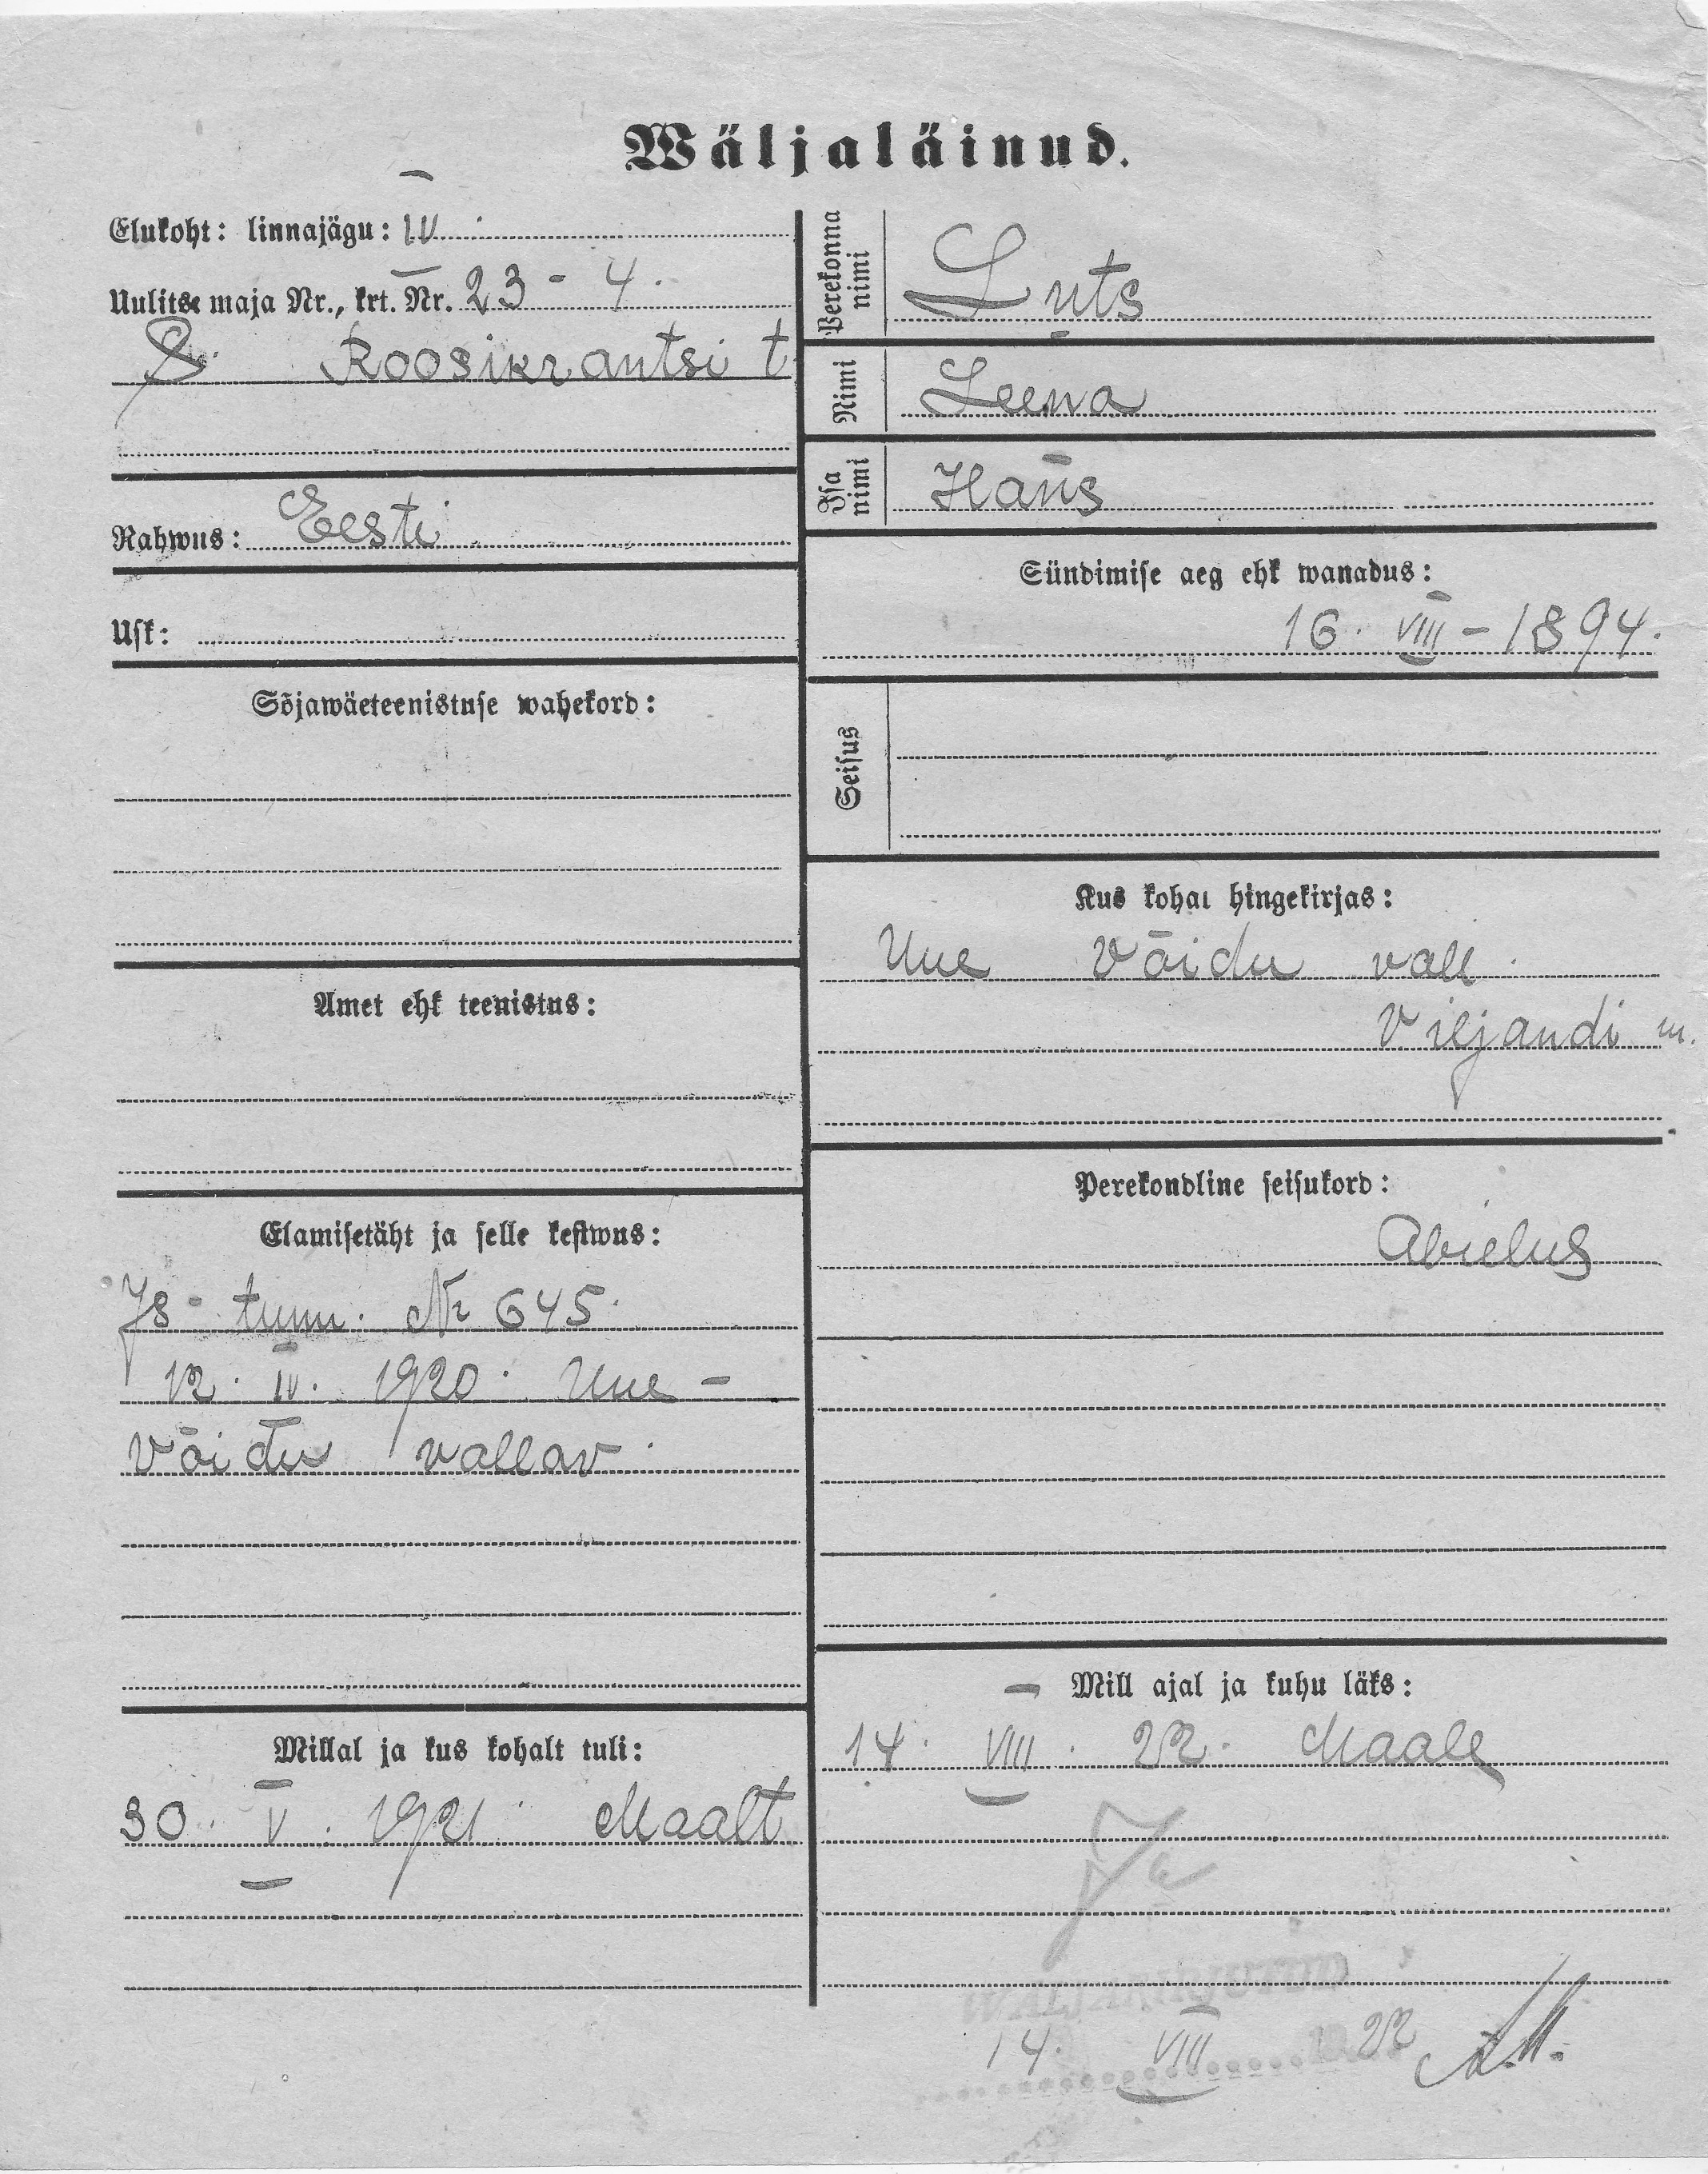 Wäljaläinud.
Elukoht: linnajägu: IV
Uulitse maja Nr., krt. Nr. 23 - 4.
S. Roosikrantsi t
Rahwus: Eesti
Usk:
Sõjawäeteenistuse wahekord:
Amet ehk teenistus:
Elamisetäht ja selle kestwus:
Is - tunn. Nr 645.
12. IV. 1920. Uue -
Võidu vallav.
Millal ja kus kohalt tuli:
30. V. 1921. Maalt
Perekonna nimi
Luts
Nimi
Leena
Isa nimi
Hans
Sündimise aeg ehk wanadus:
16. VIII - 1894.
Seisus
Kus kohal hingekirjas:
Uue Võidu vall.
Viljandi m.
Perekondline seisukord:
Abielus
Mill ajal ja kuhu läks:
14. VIII. 22. Maale
14. VIII 22